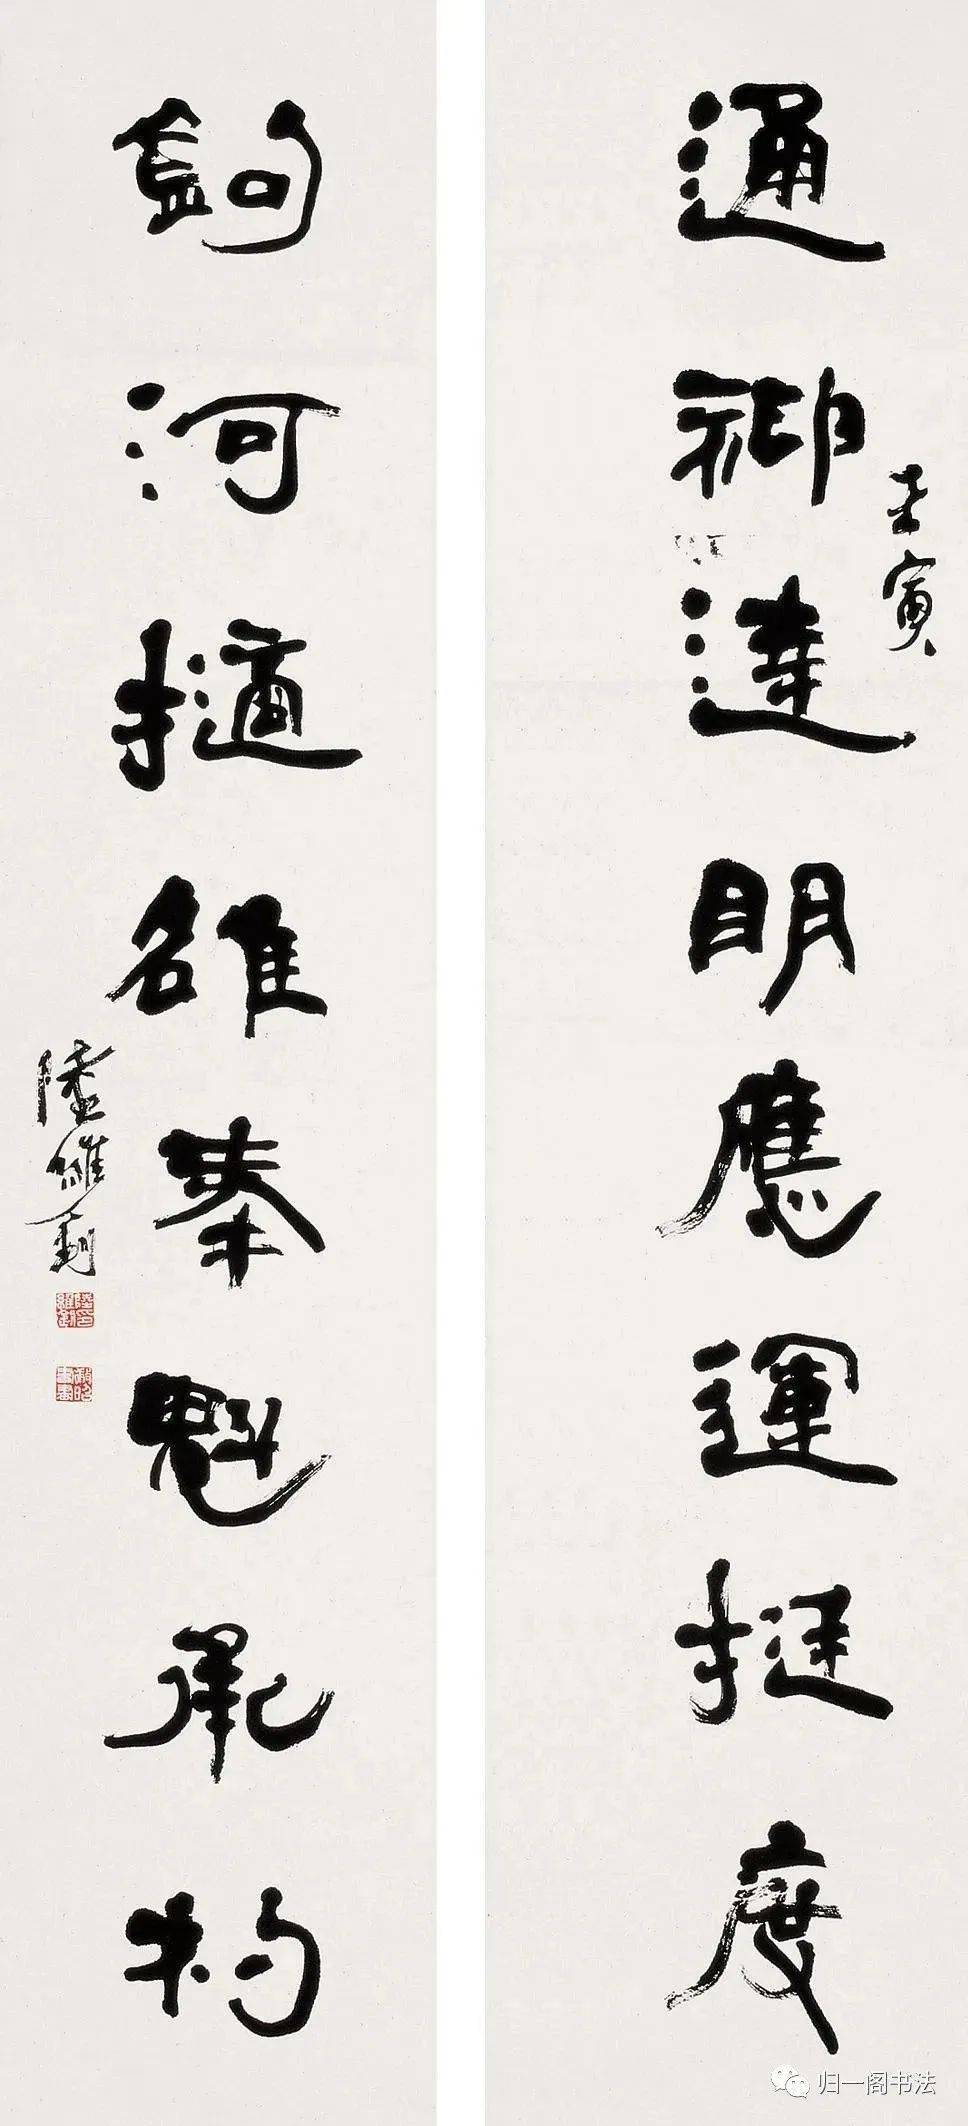 通達明應運挺度
壬寅
鉤河擿雒奉魁承杓
陸維釗
归一阁书法